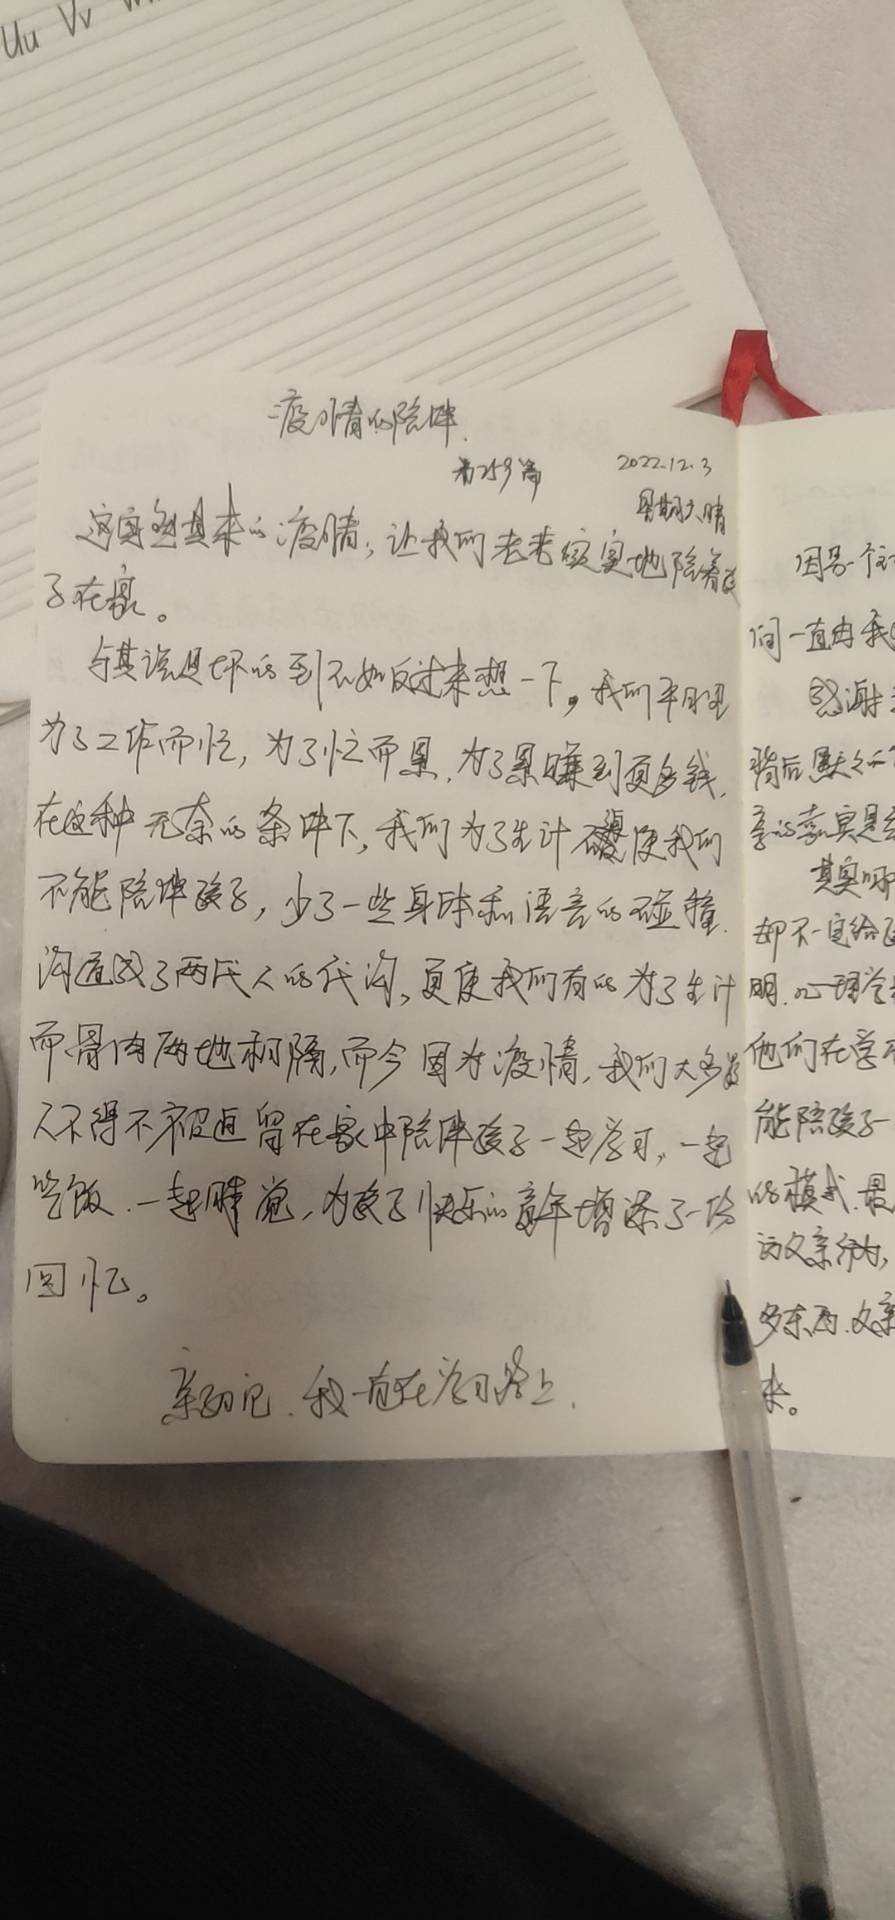 Uu Vv
疫情的陪伴.
第259篇 2022.12.3
星期六晴
这突到其来的疫情,让我们老老实实地陪着孩
子在家。
与其说是坏的到不如反过来想一下,我们平日里
为了工作而忙,为了忙而累,为了累赚到更多钱,
在这种无奈的条件下,我们为了生计 使我们
不能陪伴孩子,少了一些身体和语言的碰撞.
沟造成了两代人的代沟,更使我们有的为了生计
而骨肉两地相隔,而今因为疫情,我们大多数
人不得不被迫留在家中陪伴孩子一起学习,一起
吃饭.一起睡觉,为孩子快乐的童年增添了一份
回忆。
亲子日记.我一直在学习路上.
因另一个
间一直由我
感谢
背后默默
亲的
其实
却不一定给
明.心理学
他们在学
能陪孩子一
的模式.最
的父亲
多东西.父亲
来。